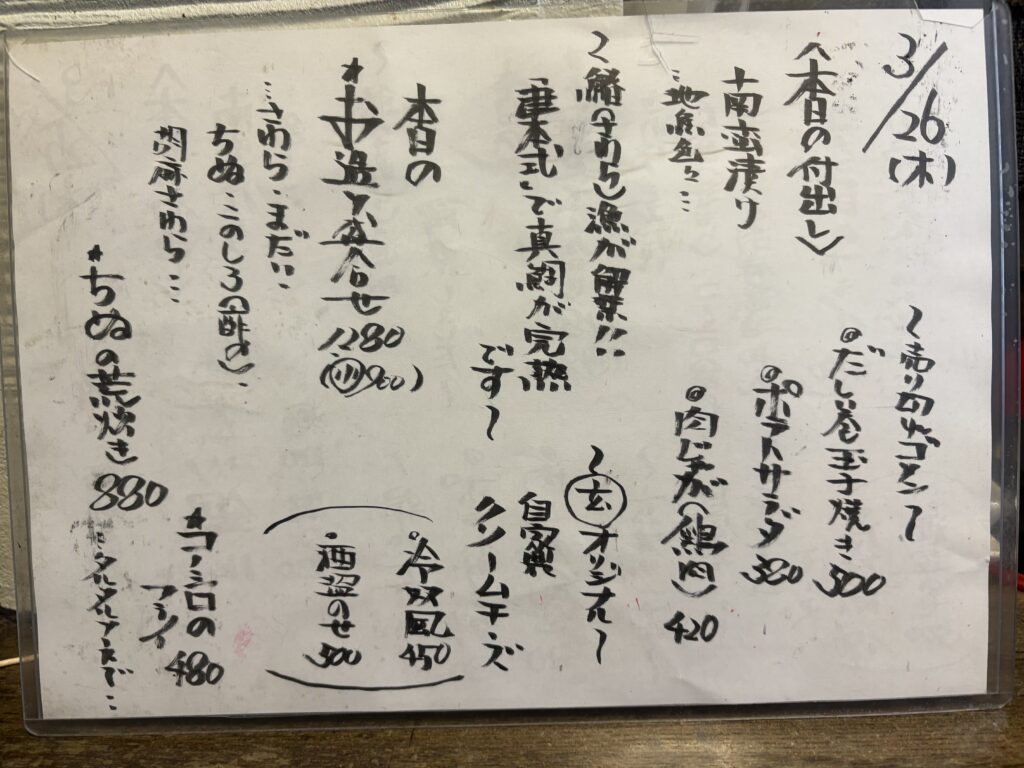 3/26(木)
〈本日の付出し〉
+南蛮漬け
…地魚色々…
〜鰆(さわら)漁が解禁!!
「津本式」で真鯛が完熟
です〜
本日の
*お造り盛合せ
1280
(小)900)
…さわら・まだい・
ちぬ・このしろ(酢〆)・
胡麻さわら…
*ちぬの荒炊き
880
〜売り切れゴメン〜
◎だし巻玉子焼き
500
◎ポテトサラダ
380
◎肉じゃが(鶏肉)
420
〜玄オリジナル〜
自家製
クリームチーズ
。冷奴風
450
・酒盗のせ
500
*コノシロの
フライ
480
…タルタルソースで…